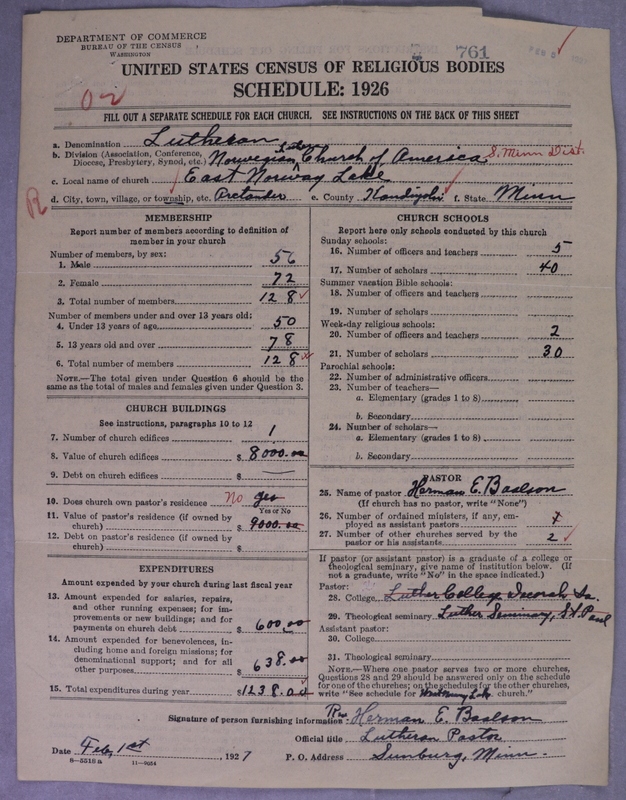 DEPARTMENT OF COMMERCE
BUREAU OF THE CENSUS
WASHINGTON
761
FEB 5
UNITED STATES CENSUS OF RELIGIOUS BODIES
SCHEDULE: 1926
02
FILL OUT A SEPARATE SCHEDULE FOR EACH CHURCH. SEE INSTRUCTIONS ON THE BACK OF THIS SHEET
a. Denomination Lutheran
b. Division (Association, Conference, Diocese, Presbytery, Synod, etc.) Norwegian Luth Church of America S. Minn Dist.
c. Local name of church East Norway Lake
d. City, town, village, or township, etc. e. County Kandiyohi f. State Minn
R
MEMBERSHIP
Report number of members according to definition of
member in your church
Number of members, by sex:
1. Male 56
2. Female 72
3. Total number of members 128
Number of members under and over 13 years old:
4. Under 13 years of age 50
5. 13 years old and over 78
6. Total number of members 128
NOTE.—The total given under Question 6 should be the
same as the total of males and females given under Question 3.
CHURCH BUILDINGS
See instructions, paragraphs 10 to 12
7. Number of church edifices 1
8. Value of church edifices $ 8000.00
9. Debt on church edifices $
10. Does church own pastor's residence No yes
Yes or No
11. Value of pastor's residence (if owned by
church) $ 9000.00
12. Debt on pastor's residence (if owned by
church) $
EXPENDITURES
Amount expended by your church during last fiscal year
13. Amount expended for salaries, repairs,
and other running expenses; for im-
provements or new buildings; and for
payments on church debt $ 600.00
14. Amount expended for benevolences, in-
cluding home and foreign missions; for
denominational support; and for all
other purposes $ 638.00
15. Total expenditures during year $1238.00
CHURCH SCHOOLS
Report here only schools conducted by this church
Sunday schools:
16. Number of officers and teachers 5
17. Number of scholars 40
Summer vacation Bible schools:
18. Number of officers and teachers
19. Number of scholars
Week-day religious schools:
20. Number of officers and teachers 2
21. Number of scholars 30
Parochial schools:
22. Number of administrative officers
23. Number of teachers—
a. Elementary (grades 1 to 8)
b. Secondary
24. Number of scholars—
a. Elementary (grades 1 to 8)
b. Secondary
PASTOR
25. Name of pastor Herman E. Baalson
(If church has no pastor, write "None")
26. Number of ordained ministers, if any, em-
ployed as assistant pastors
27. Number of other churches served by the
pastor or his assistants 2
If pastor (or assistant pastor) is a graduate of a college or
theological seminary, give name of institution below. (If
not a graduate, write "No" in the space indicated.)
Pastor:
28. College Luther College Decorah Ia.
29. Theological seminary Luther Seminary, St. Paul
Assistant pastor:
30. College
31. Theological seminary
NOTE.—Where one pastor serves two or more churches,
Questions 28 and 29 should be answered only on the schedule
for one of the churches; on the schedules for the other churches,
write "See schedule for West Norway Lake church."
Signature of person furnishing information Rev. Herman E. Baalson
Official title Lutheran Pastor
Date Feb. 1st, 1927 P. O. Address Sunburg, Minn.
8-5518a 11-9054